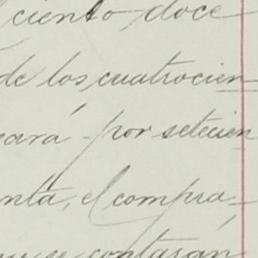 ciento doce
de los cuatrocien
ará por setecien
nta, el compra-
se contarán